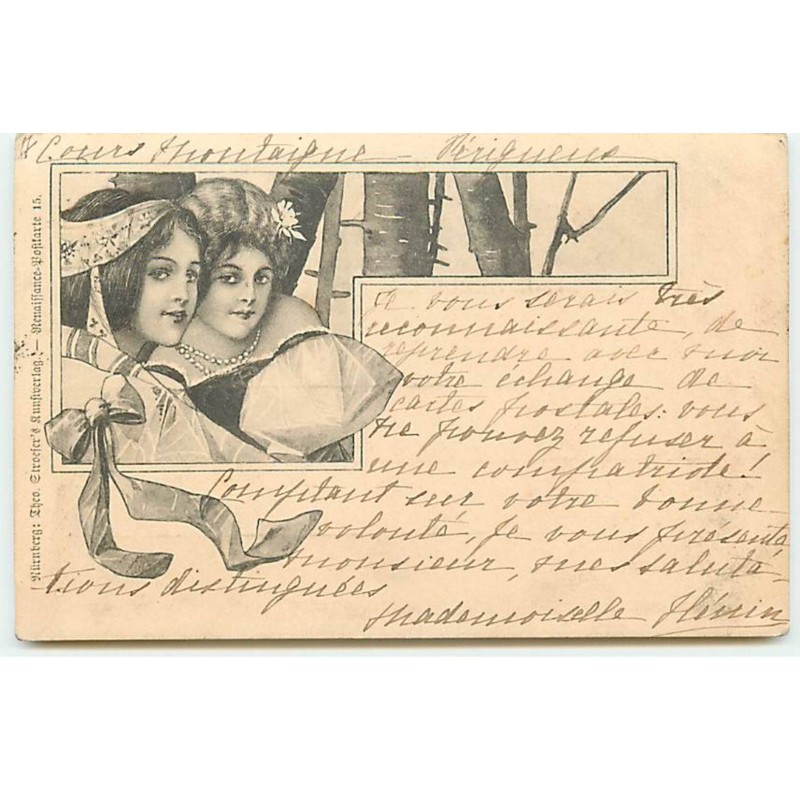 8 Cours Montaigne – Périgueux
Nürnberg: Theo. Stroefer's Kunstverlag. – Renaissance-Postkarte 15.
Je vous serais très
reconnaissante, de
reprendre avec moi
votre échange de
cartes postales: vous
ne pouvez refuser à
une compatriote!
Comptant sur votre bonne
volonté, je vous présente,
monsieur, mes saluta-
tions distinguées
Mademoiselle